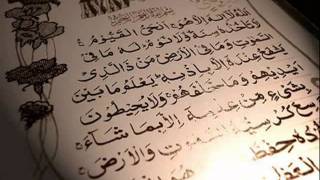 اَللّٰهُ لَا اِلٰهَ اِلَّا هُوَ اَلْحَىُّ الْقَيُّوْمُ
تَأْخُذُهُ سِنَةٌ وَّلَا نَوْمٌ لَهُ مَا فِى
السَّمٰوٰتِ وَمَا فِى الْاَرْضِ مَنْ ذَا الَّذِىْ
يَشْفَعُ عِنْدَهُ اِلَّا بِاِذْنِهٖ يَعْلَمُ مَا بَيْنَ
اَيْدِيْهِمْ وَمَا خَلْفَهُمْ وَلَا يُحِيْطُوْنَ
بِشَىْءٍ مِّنْ عِلْمِهٖ اِلَّا بِمَا شَآءَ
وَسِعَ كُرْسِيُّهُ السَّمٰوٰتِ وَالْاَرْضَ